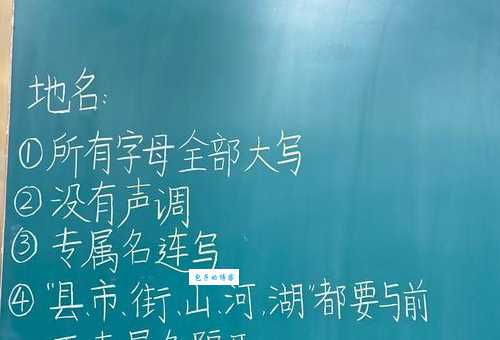 地名:
①所有字母全部大写
②没有声调
③专属名连写
④"县、市、街、山、河、湖"都要与前